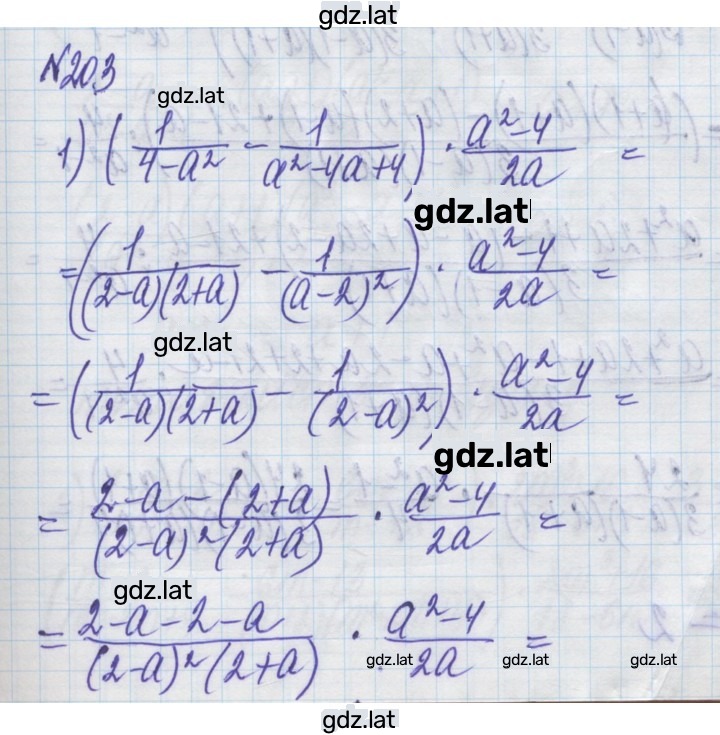 gdz.lat
№203
gdz.lat
1) (1/(4-a²) - 1/(a²-4a+4)) · (a²-4)/(2a) =
gdz.lat
= (1/((2-a)(2+a)) - 1/((a-2)²)) · (a²-4)/(2a) =
gdz.lat
= (1/((2-a)(2+a)) - 1/((2-a)²)) · (a²-4)/(2a) =
gdz.lat
= (2-a-(2+a))/((2-a)²(2+a)) · (a²-4)/(2a) =
gdz.lat
= (2-a-2-a)/((2-a)²(2+a)) · (a²-4)/(2a) =
gdz.lat gdz.lat gdz.lat
gdz.lat